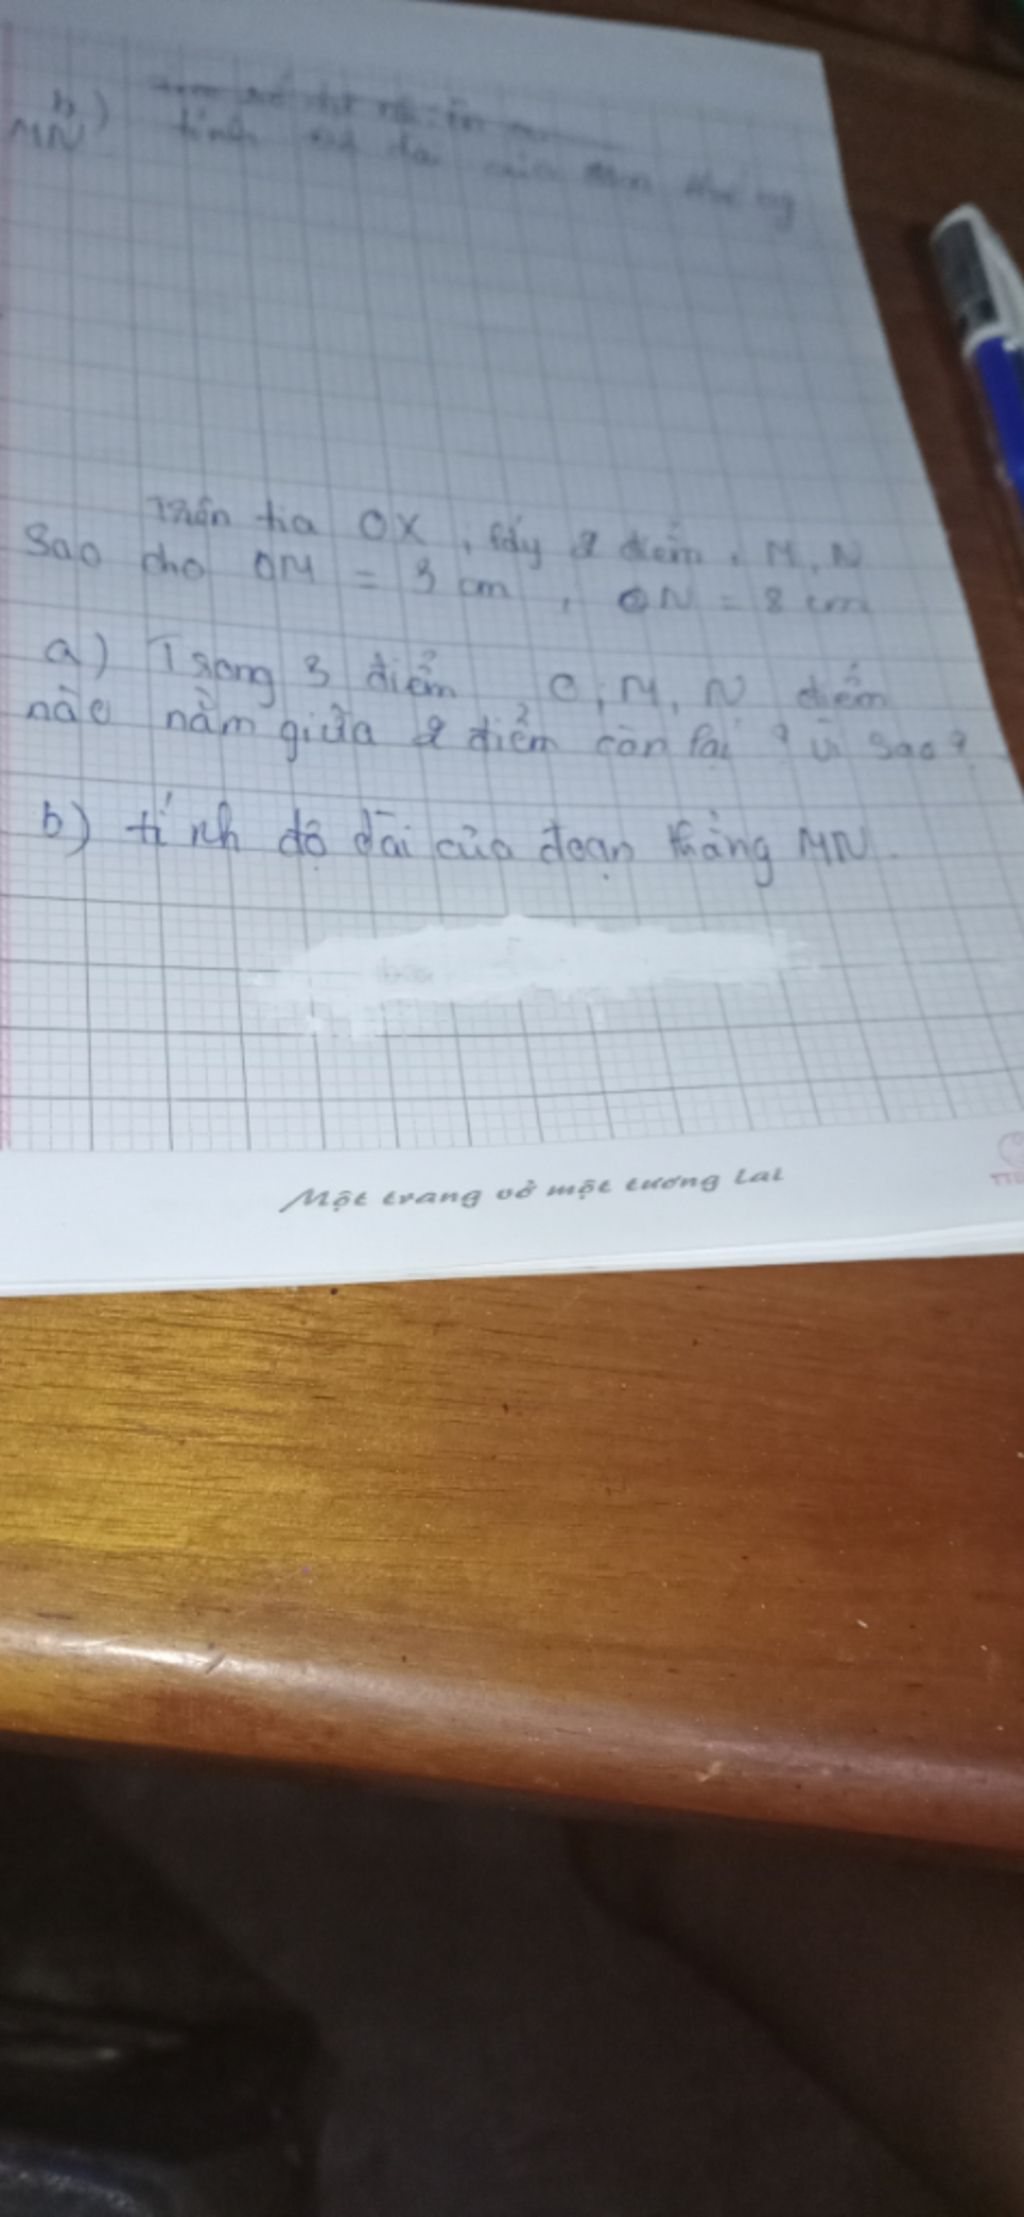 b) tính
MN
Trên tia OX, lấy 2 điểm, M, N
Sao cho OM = 3 cm, ON = 8 cm
a) Trong 3 điểm O, M, N điểm
nào nằm giữa 2 điểm còn lại? Vì sao?
b) tính độ dài của đoạn thẳng MN.
Một trang vở một tương lai